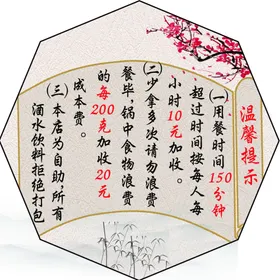 温馨提示
(一)用餐时间150分钟
超过时间按每人每
小时10元加收。
(二)少拿多次请勿浪费
餐毕,锅中食物浪费
的每200克加收20元
成本费。
(三)本店为自助,所有
酒水饮料拒绝打包